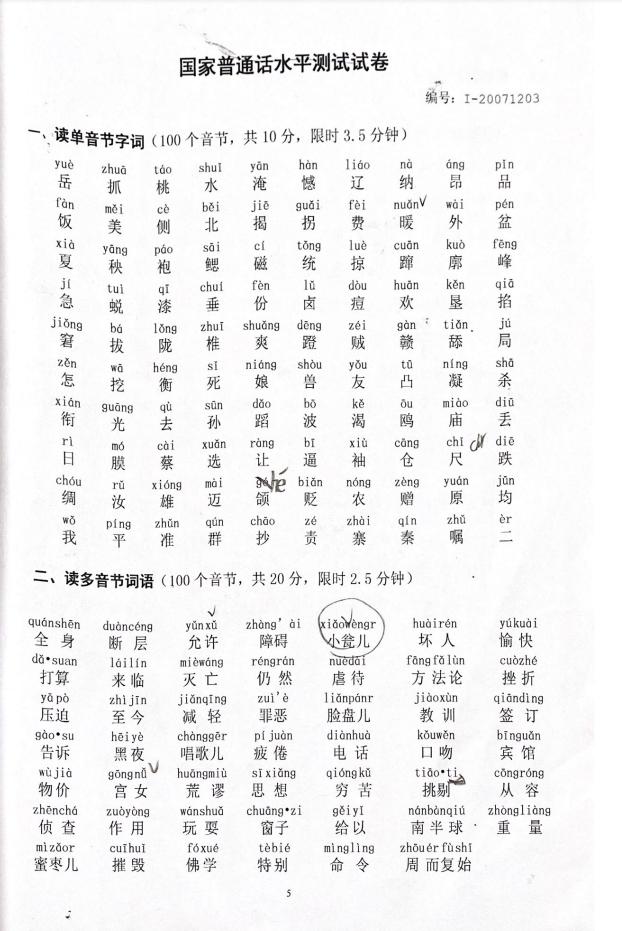 国家普通话水平测试试卷
编号：I-20071203
一、读单音节字词（100个音节，共10分，限时3.5分钟）
yuè zhuā táo shuǐ yān hàn liáo nà áng pǐn
岳 抓 桃 水 淹 憾 辽 纳 昂 品
fàn měi cè běi jiē guǎi fèi nuǎn wài pén
饭 美 侧 北 揭 拐 费 暖 外 盆
xià yāng páo sāi cí tǒng luè cuān kuò fēng
夏 秧 袍 鳃 磁 统 掠 蹿 廓 峰
jí tuì qī chuí fèn lǔ dòu huān kěn qiā
急 蜕 漆 垂 份 卤 痘 欢 垦 掐
jiǒng bá lǒng zhuī shuǎng dēng zéi gàn tiǎn jú
窘 拔 陇 椎 爽 蹬 贼 赣 舔 局
zěn wā héng sǐ niáng shòu yǒu tū níng shā
怎 挖 衡 死 娘 兽 友 凸 凝 杀
xián guāng qù sūn dǎo bō kě ōu miào diū
衔 光 去 孙 蹈 波 渴 鸥 庙 丢
rì mó cài xuǎn ràng bī xiù cāng chǐ diē
日 膜 蔡 选 让 逼 袖 仓 尺 跌
chóu rǔ xióng mài hé biǎn nóng zèng yuán jūn
绸 汝 雄 迈 颌 贬 农 赠 原 均
wǒ píng zhǔn qún chāo zé zhài qín zhǔ èr
我 平 准 群 抄 责 寨 秦 嘱 二
二、读多音节词语（100个音节，共20分，限时2.5分钟）
quánshēn duàncéng yǔnxǔ zhàng'ài xiǎowèngr huàirén yúkuài
全身 断层 允许 障碍 小瓮儿 坏人 愉快
dǎ•suan láilín mièwáng réngrán nüèdài fāngfǎlùn cuòzhé
打算 来临 灭亡 仍然 虐待 方法论 挫折
yāpò zhìjīn jiǎnqīng zuì'è liǎnpánr jiàoxùn qiāndìng
压迫 至今 减轻 罪恶 脸盘儿 教训 签订
gào•su hēiyè chànggēr píjuàn diànhuà kǒuwěn bīnguǎn
告诉 黑夜 唱歌儿 疲倦 电话 口吻 宾馆
wùjià gōngnǚ huāngmiù sīxiǎng qióngkǔ tiāo•ti cóngróng
物价 宫女 荒谬 思想 穷苦 挑剔 从容
zhēnchá zuòyòng wánshuǎ chuāng•zi gěiyǐ nánbànqiú zhòngliàng
侦查 作用 玩耍 窗子 给以 南半球 重量
mìzǎor cuīhuǐ fóxué tèbié mìnglìng zhōu ér fù shǐ
蜜枣儿 摧毁 佛学 特别 命令 周而复始
5